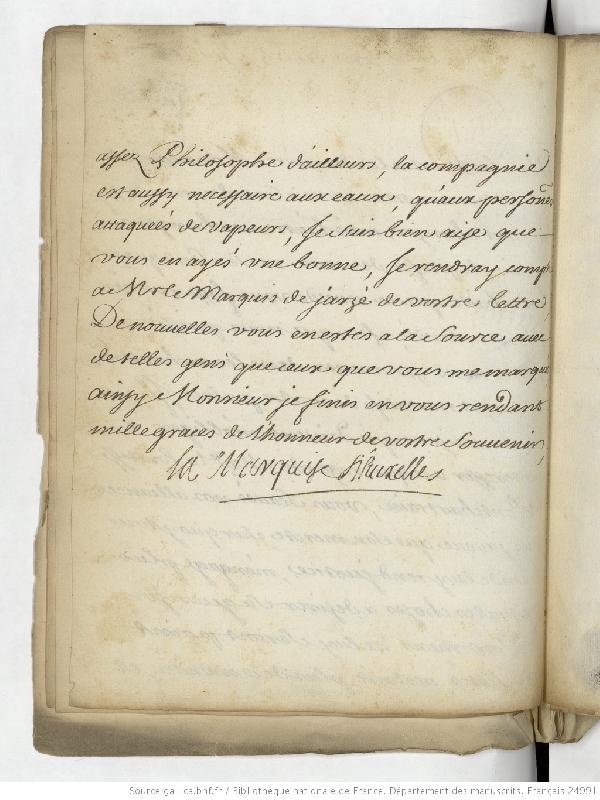 assez Philosophe d'ailleurs, la compagnie
est aussy necessaire aux eaux, qu'aux personẽs
attaqueés de vapeurs, Je suis bien aise que
vous en ayés vne bonne, Je rendray compt
a Mr le Marquis de jarzé de vostre lettre,
De nouvelles vous en estes a la source avec
de telles gens que ceux que vous me marqué
ainsy Monsieur je finis en vous rendant
mille graces de l'honneur de vostre souvenir,
la Marquise d'huxelles
Source gallica.bnf.fr / Bibliothèque nationale de France. Département des manuscrits. Français 24991